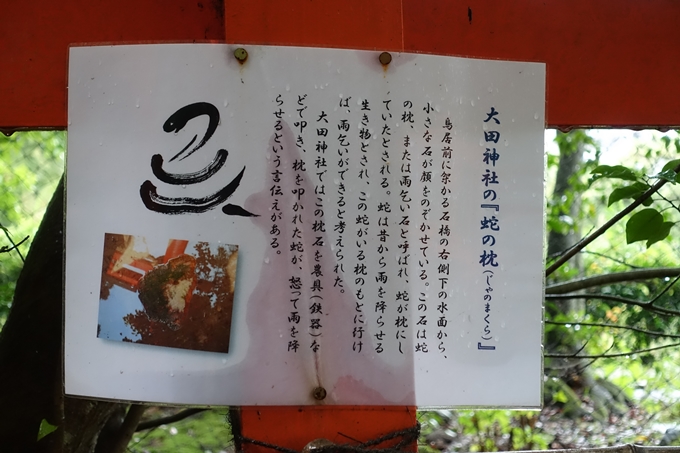 大田神社の『蛇の枕(じゃのまくら)』
鳥居前に架かる石橋の右側下の水面から、
小さな石が顔をのぞかせている。この石は蛇
の枕、または雨乞い石と呼ばれ、蛇が枕にし
ていたとされる。蛇は昔から雨を降らせる
生き物とされ、この蛇がいる枕のもとに行け
ば、雨乞いができると考えられた。
大田神社ではこの枕石を農具(鉄器)な
どで叩き、枕を叩かれた蛇が、怒って雨を降
らせるという言伝えがある。
巳